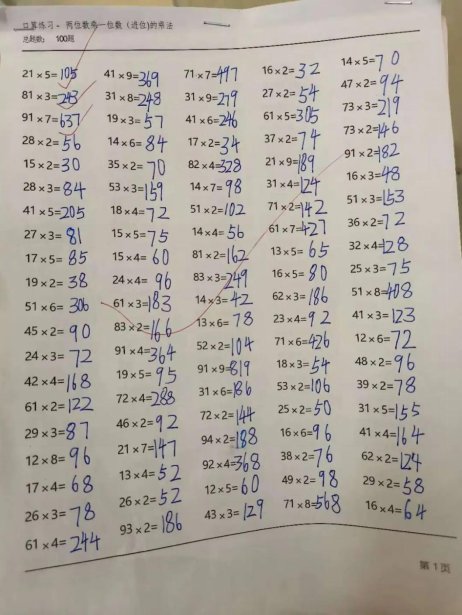 口算练习 - 两位数乘一位数 (进位)的乘法
总题数: 100题
21×5=105 41×9=369 71×7=497 16×2=32 14×5=70
81×3=243 31×8=248 31×9=279 27×2=54 47×2=94
91×7=637 19×3=57 41×6=246 61×5=305 73×3=219
28×2=56 14×6=84 17×2=34 37×2=74 73×2=146
15×2=30 35×2=70 82×4=328 21×9=189 91×2=182
28×3=84 53×3=159 14×7=98 31×4=124 16×3=48
41×5=205 18×4=72 51×2=102 71×2=142 51×3=153
27×3=81 15×5=75 14×4=56 61×7=427 36×2=72
17×5=85 15×4=60 81×2=162 13×5=65 32×4=128
19×2=38 24×4=96 83×3=249 16×5=80 25×3=75
51×6=306 61×3=183 14×3=42 62×3=186 51×8=408
45×2=90 83×2=166 13×6=78 23×4=92 41×3=123
24×3=72 91×4=364 52×2=104 71×6=426 12×6=72
42×4=168 19×5=95 91×9=819 18×3=54 48×2=96
61×2=122 72×4=288 31×6=186 53×2=106 39×2=78
29×3=87 46×2=92 72×2=144 25×2=50 31×5=155
12×8=96 21×7=147 94×2=188 16×6=96 41×4=164
17×4=68 13×4=52 92×4=368 38×2=76 62×2=124
26×3=78 26×2=52 12×5=60 49×2=98 29×2=58
61×4=244 93×2=186 43×3=129 71×8=568 16×4=64
第1页